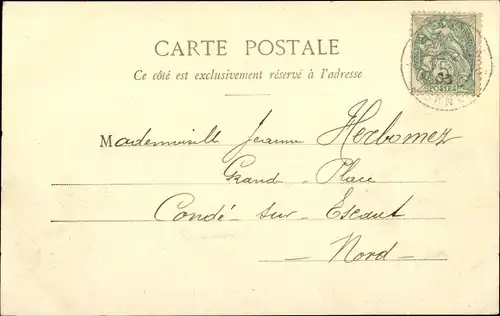 CARTE POSTALE
Ce côté est exclusivement réservé à l'adresse
Mademoiselle Jeanne Herbomez
Grand-Place
Condé-sur-Escaut
— Nord —
5
POSTES